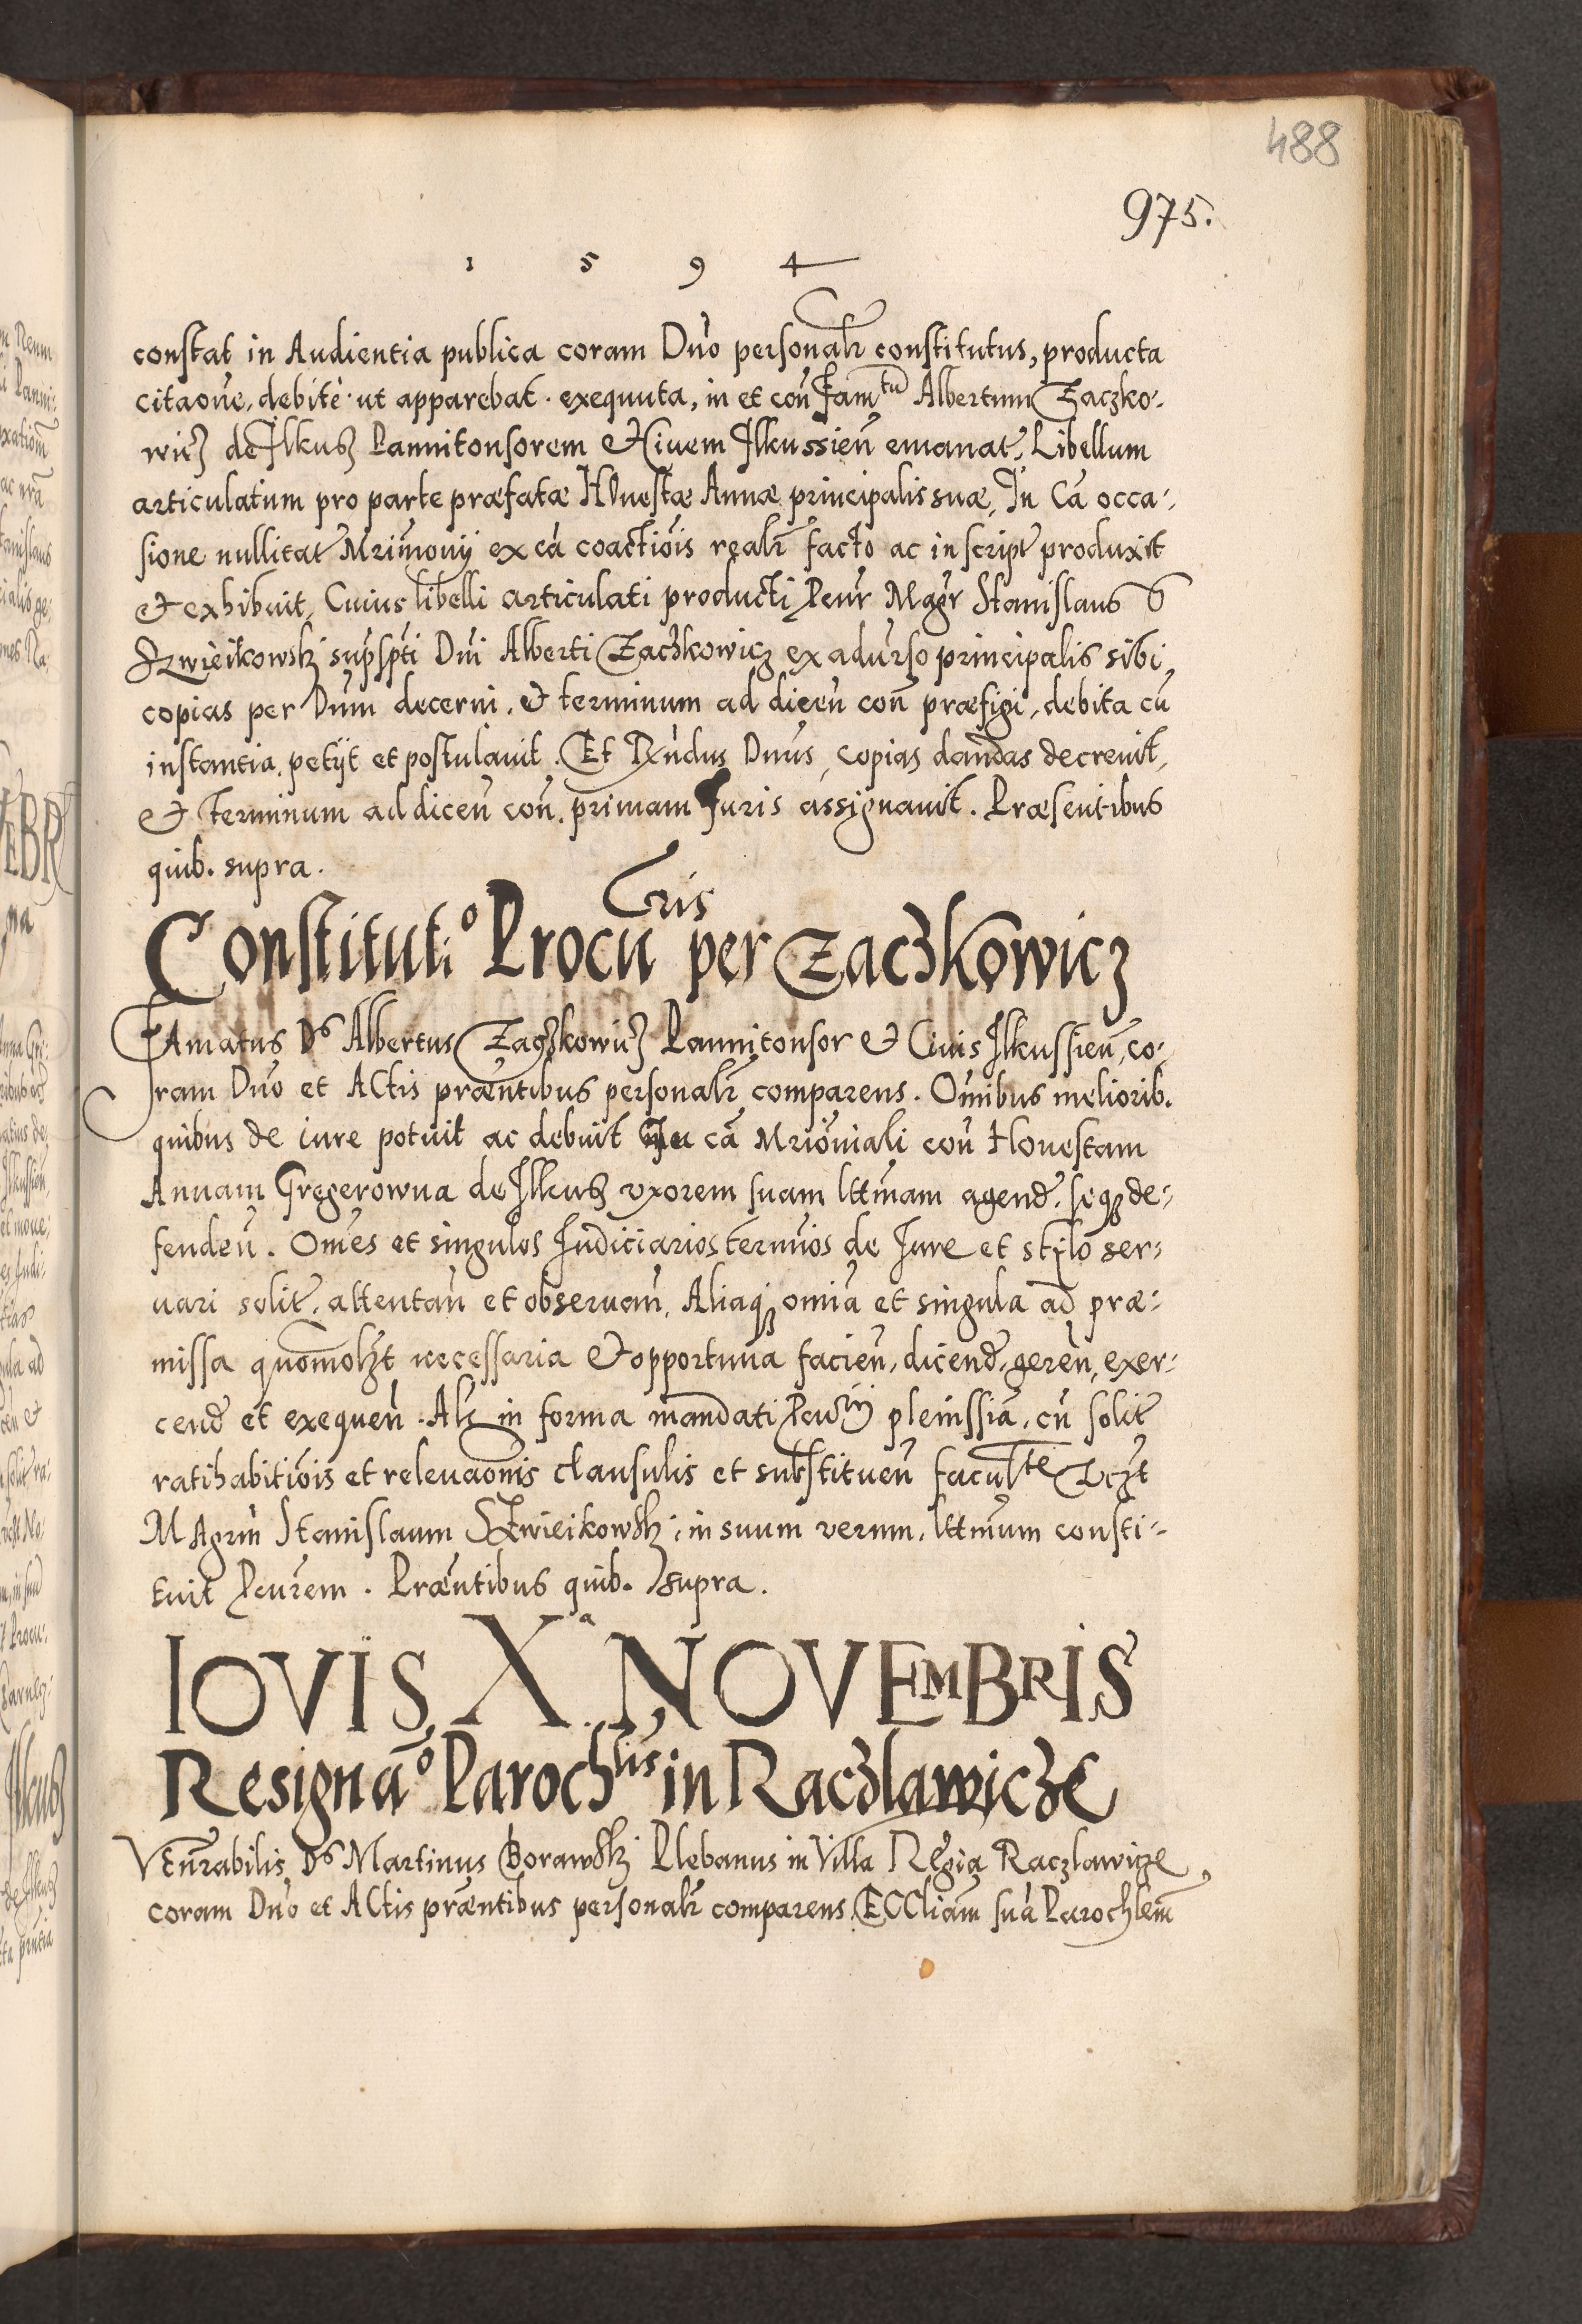 488
975.
1 5 9 4
constat in Audientia publica coram Dno personalr constitutus, producta
citaone, debite ut apparebat. exequuta, in et con Famtu Albertum Zaczko-
wicz de Ilkusz Pannitonsorem et Civem Ilkussien emanat, Libellum
articulatum pro parte præfatæ HOnestæ Annæ principalis suæ, In Ca occa-
sione nullitat Mrimonij ex ca coactiois realr facto ac in script produxit
et exhibuit, Cuius libelli articulati producti Pcur Magr Stanislaus
Szwieikowsky supspti Dni Alberti Zaczkowicz ex adurso principalis sibi
copias per Dnum decerni, et terminum ad dicen con præfigi, debita cu
instantia, petijt et postulavit. Et Rxndus Dnus, copias dandas decrevit,
et Terminum ad dicen con. primam Juris assignavit. Præsentibus
quib. supra.
Constitutio Procuris per Zaczkowicz
FAmatus Ds Albertus Zaczkowicz Pannitonsor et Civis Ilkussien, co-
ram Dno et ACtis præntibus personalr comparens. Omnibus meliorib.
quibus de iure potuit ac debuit In ca Mrioniali con Honestam
Annam Gregerowna de Ilkusz vxorem suam lttmam agend. seq de-
fenden. Omes et singulos Judiciarios termios de Jure et stylo ser-
uari solit. attentan et obseruan, Aliaq omia et singula ad præ-
missa quomolzt necessaria et opportuna facien, dicend, geren, exer-
cend et exequen. Als in forma mandati Pcurij plenissia, cu solit
ratihabitiois et relevaonis clausulis et substituen facultte Lczt
MAgrm Stanislaum Szwieikowsky in suum verum, lttmum consti-
tuit Pcurem. Præntibus quib. supra.
IOVIS Xa NOVEMBRIS
Resignao Parochlis in Raczlawicze
VEnrabilis Ds Martinus Borawsky Plebanus in Villa Regia Raczlawicze,
coram Dno et ACtis præntibus personalr comparens ECCliam sua Parochlem